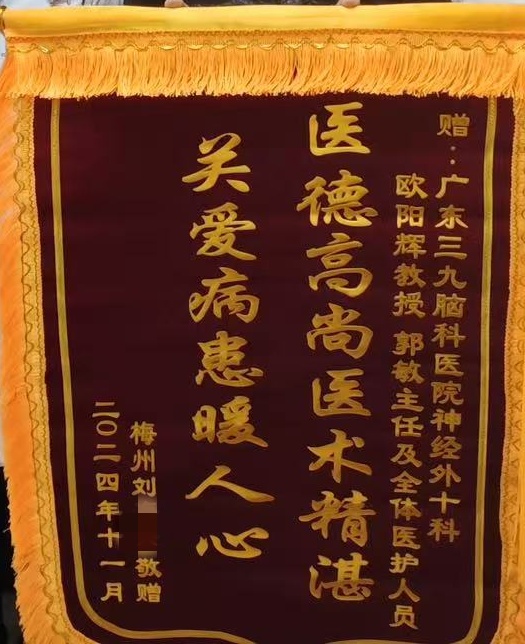 赠：广东三九脑科医院神经外十科
欧阳辉教授 郭敏主任及全体医护人员
医德高尚医术精湛
关爱病患暖人心
梅州刘 敬赠
二〇二四年十一月